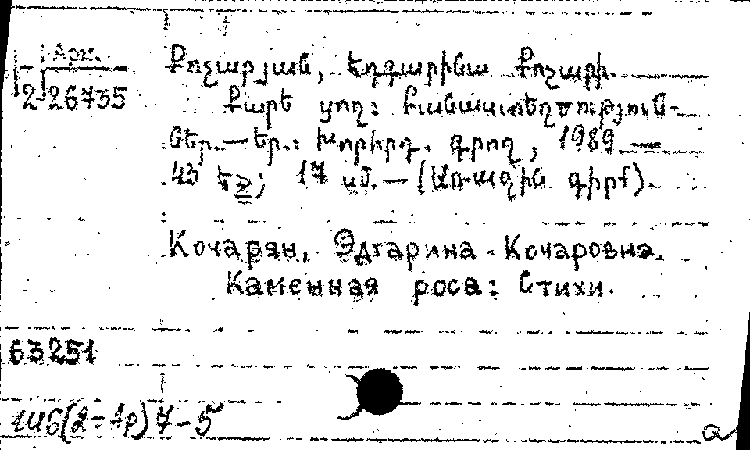 Арм.
2-26735
Քոչարյան, Էդգարինա Քոչարի.
Քարե ցող: Բանաստեղծություն-
ներ.— Եր.: Խորհրդ. գրող, 1989.—
43 էջ; 17 սմ.— (Առաջին գիրք).
Кочарян, Эдгарина Кочаровна.
Каменная роса: Стихи.
63251
Ш6(2=Ар)7-5
a